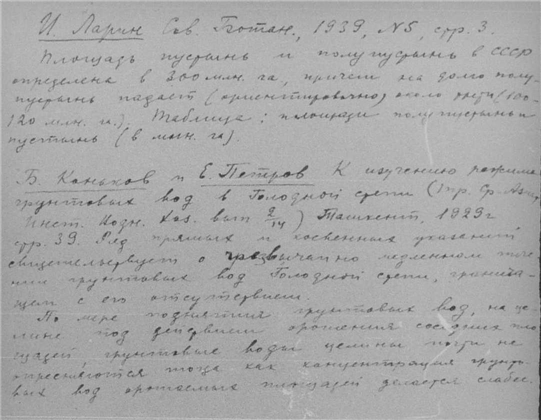 И. Ларин Сов. Ботан., 1939, №5, стр. 3.
Площадь пустынь и полупустынь в СССР
определена в 300 млн. га, причем на долю полу-
пустынь падает (ориентировочно) около трети (100-
120 млн. га). Таблица: площади полупустынь и
пустынь (в млн. га).
Б. Коньков и Е. Петров К изучению режима
грунтовых вод в Голодной степи (Тр. Ср. Аз.
Инст. Хоз. вып 2/14) Ташкент, 1929 г
стр. 39. Ряд прямых и косвенных указаний
свидетельствует о чрезвычайно медленном тече-
нии грунтовых вод Голодной степи, гранича-
щем с его отсутствием.
По мере поднятия грунтовых вод, на це-
лине под действием орошения соседних пло-
щадей, грунтовые воды целины почти не
опресняются тогда как концентрация грунто-
вых вод орошаемых площадей делается слабее.